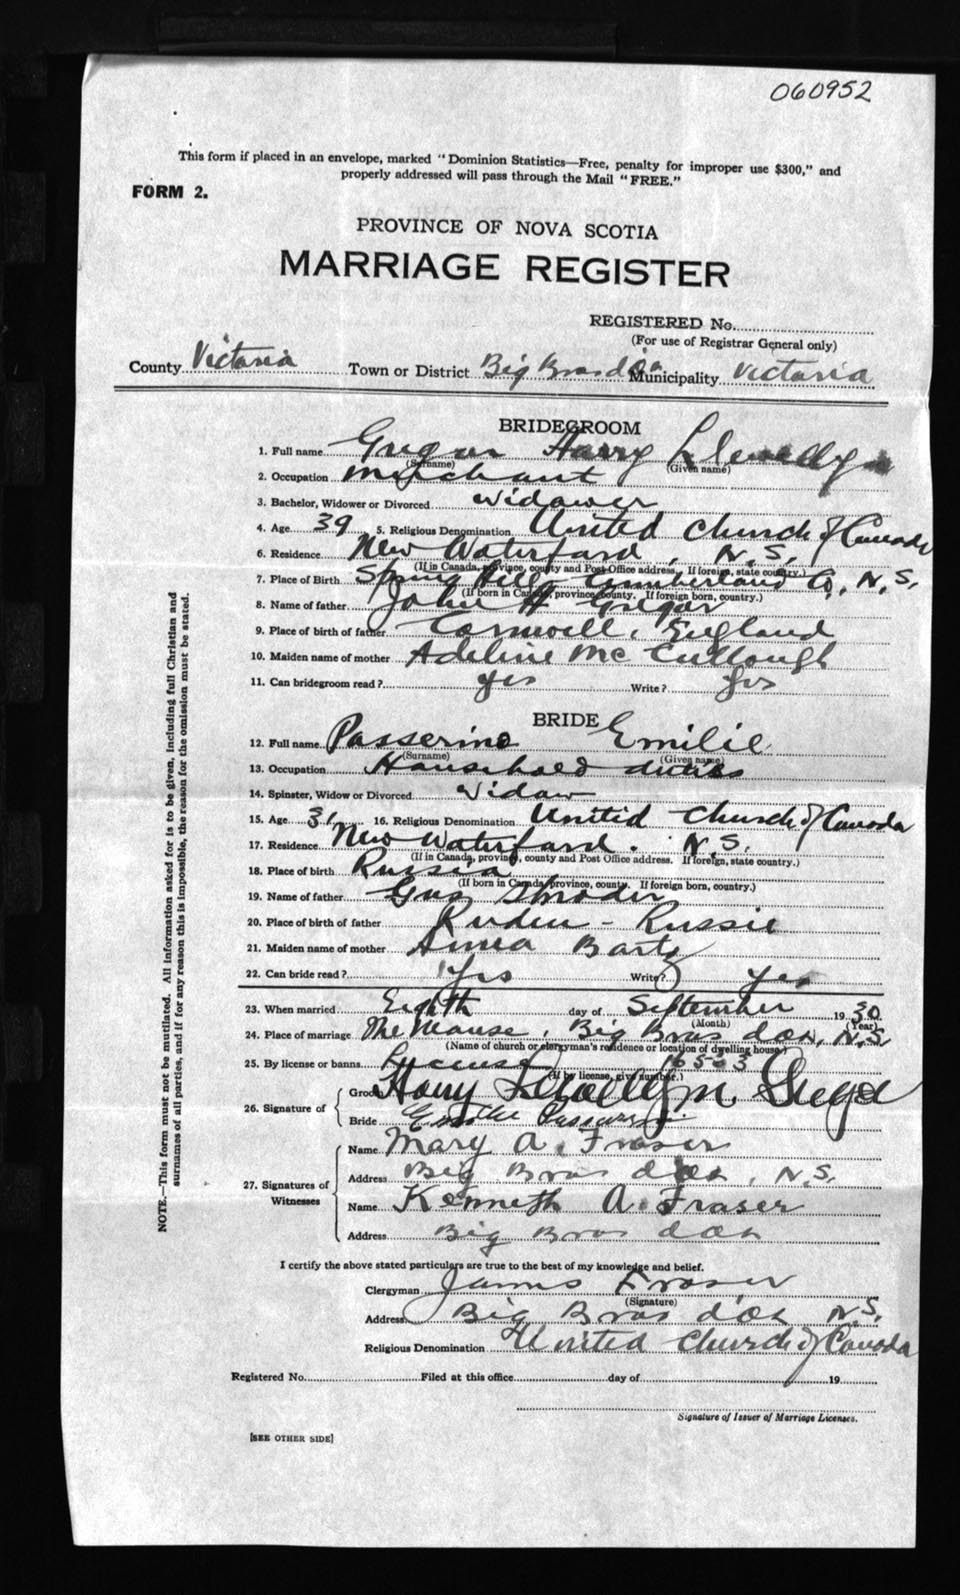 060952
This form if placed in an envelope, marked "Dominion Statistics—Free, penalty for improper use $300," and
properly addressed will pass through the Mail "FREE."
FORM 2.
PROVINCE OF NOVA SCOTIA
MARRIAGE REGISTER
REGISTERED No.
(For use of Registrar General only)
County Victoria Town or District Big Bras d'Or Municipality Victoria
BRIDEGROOM
1. Full name Gregor Harry Llewellyn
(Surname) (Given name)
2. Occupation Merchant
3. Bachelor, Widower or Divorced Widower
4. Age 39 5. Religious Denomination United Church of Canada
6. Residence New Waterford, N.S.
(If in Canada, province, county and Post Office address. If foreign, state country.)
7. Place of Birth Spring Hill, Cumberland Co, N.S.
(If born in Canada, province, county. If foreign born, country.)
8. Name of father John H Gregor
9. Place of birth of father Cornwell, England
10. Maiden name of mother Adeline McCullough
11. Can bridegroom read? yes Write? yes
BRIDE
12. Full name Passerino Emilie
(Surname) (Given name)
13. Occupation Household duties
14. Spinster, Widow or Divorced Widow
15. Age 31 16. Religious Denomination United Church of Canada
17. Residence New Waterford. N.S.
(If in Canada, province, county and Post Office address. If foreign, state country.)
18. Place of birth Russia
(If born in Canada, province, county. If foreign born, country.)
19. Name of father
20. Place of birth of father - Russie
21. Maiden name of mother Anna
22. Can bride read? Yes Write? yes
23. When married Eighth day of September 1930
(Month) (Year)
24. Place of marriage The Manse, Big Bras d'Or, N.S.
(Name of church or clergyman's residence or location of dwelling house.)
25. By license or banns License 16523
(If by license, give number.)
26. Signature of
Groom Harry Llewellyn Gregor
Bride Emilie Passerino
27. Signatures of
Witnesses
Name Mary A. Fraser
Address Big Bras d'Or, N.S.
Name Kenneth A. Fraser
Address Big Bras d'Or
I certify the above stated particulars are true to the best of my knowledge and belief.
Clergyman James Fraser
(Signature)
Address Big Bras d'Or N.S.
Religious Denomination United Church of Canada
Registered No. Filed at this office day of 19
Signature of Issuer of Marriage Licenses.
[SEE OTHER SIDE]
NOTE.—This form must not be mutilated. All information asked for is to be given, including full Christian and
surnames of all parties, and if for any reason this is impossible, the reason for the omission must be stated.